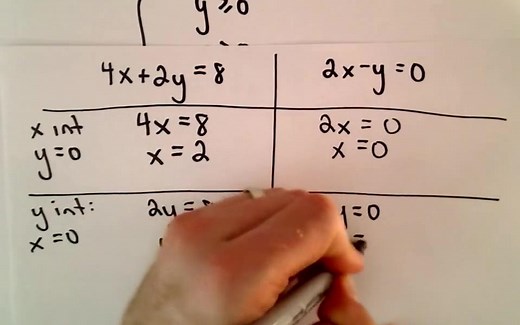 y≥0
4x+2y=8
2x-y=0
x int
y=0
4x=8
x=2
2x=0
x=0
y int:
x=0
2y=
y=0
=